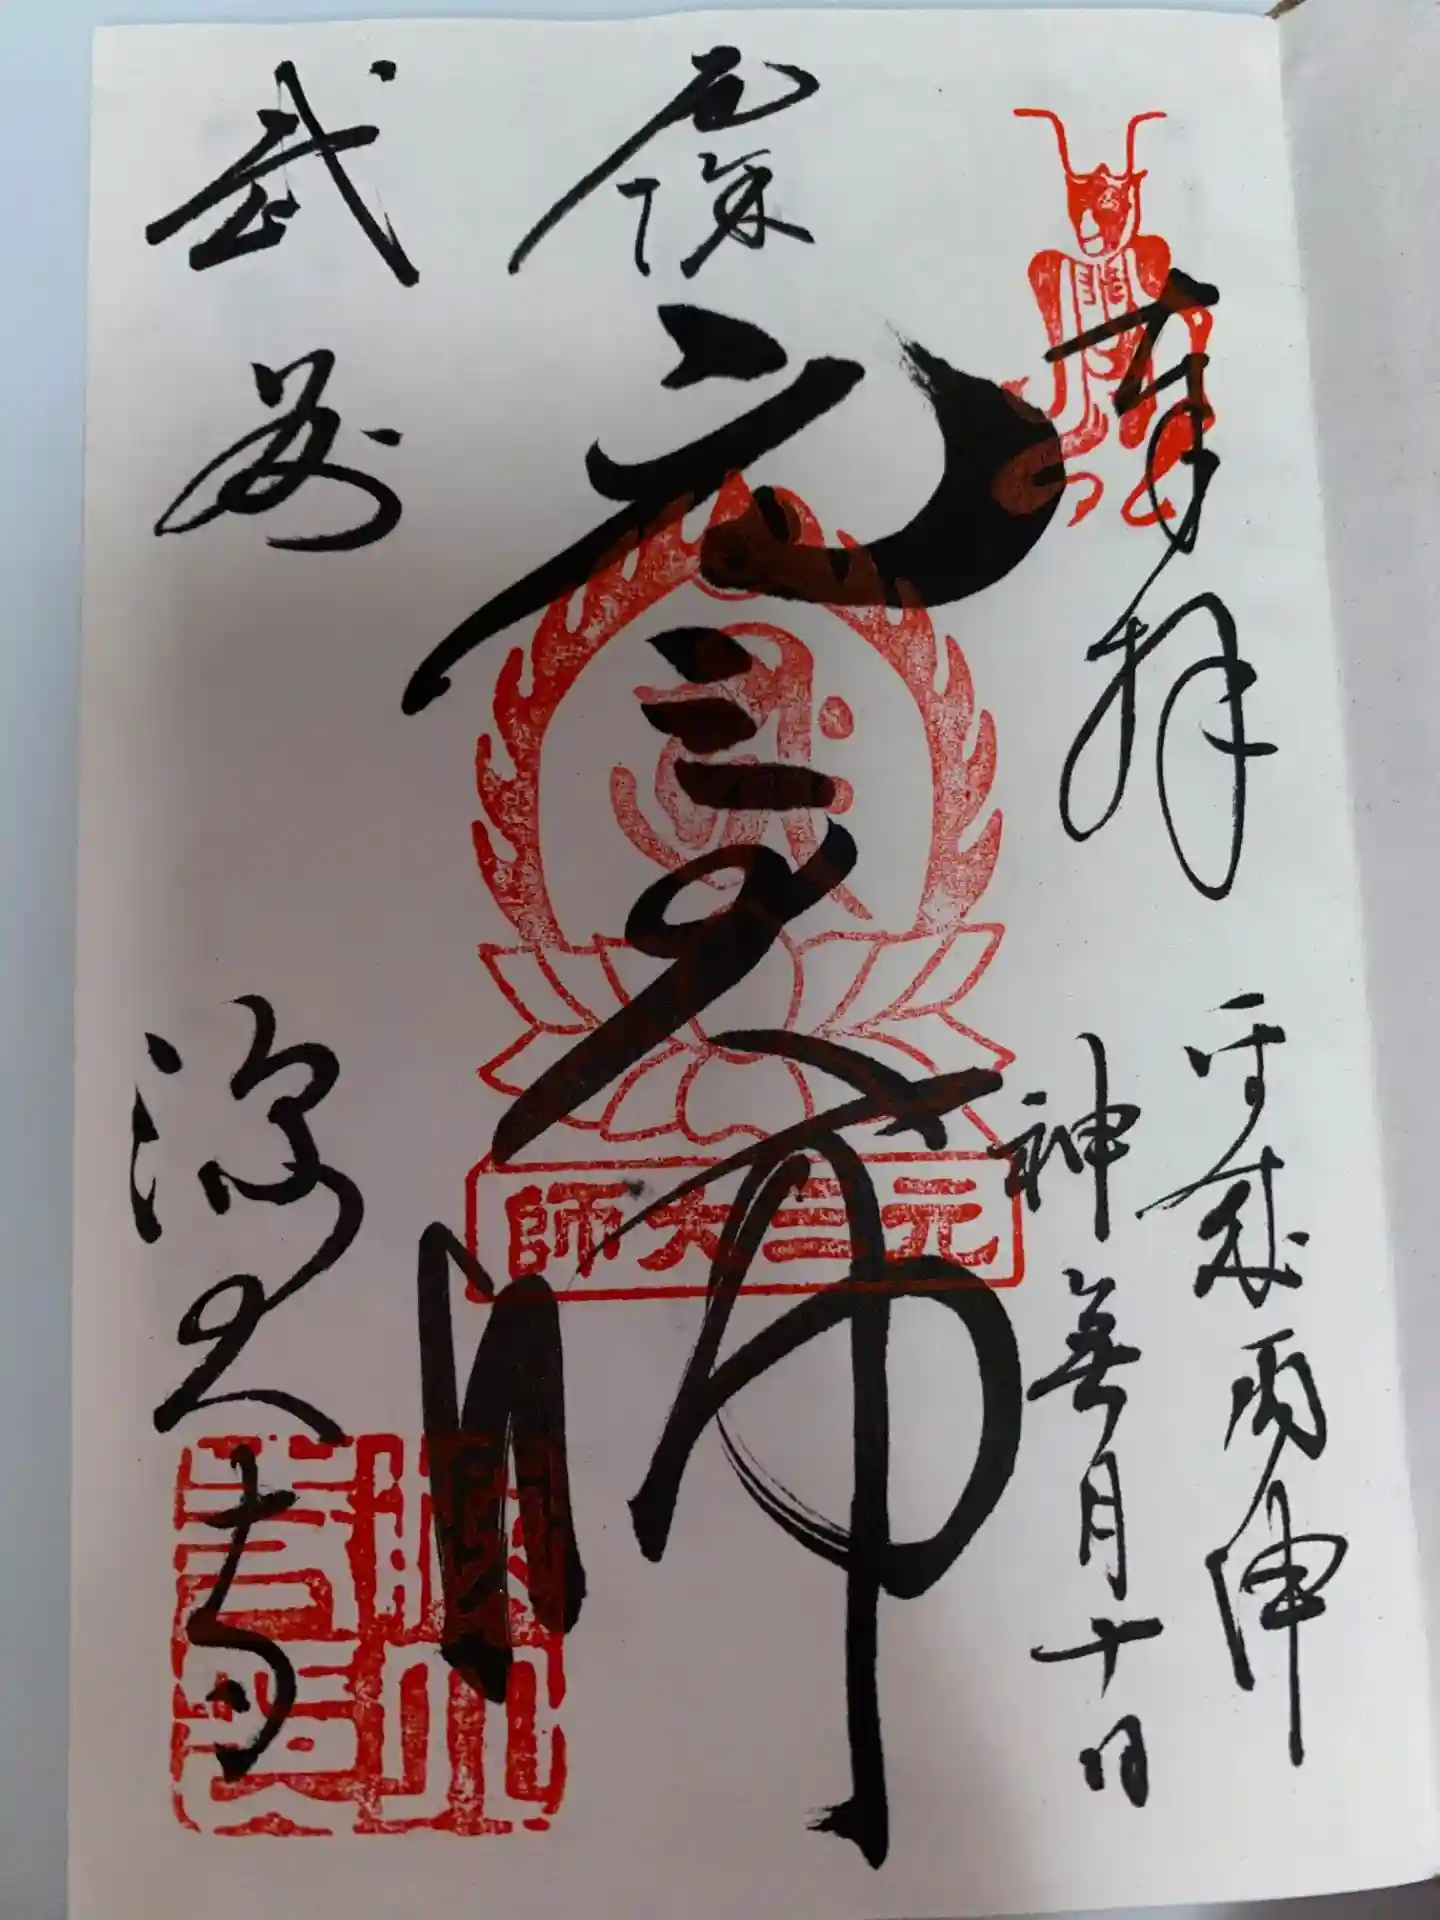 奉拝
平成丙申
神無月十日
厄除
元三大師
元三大師
武州
深大寺